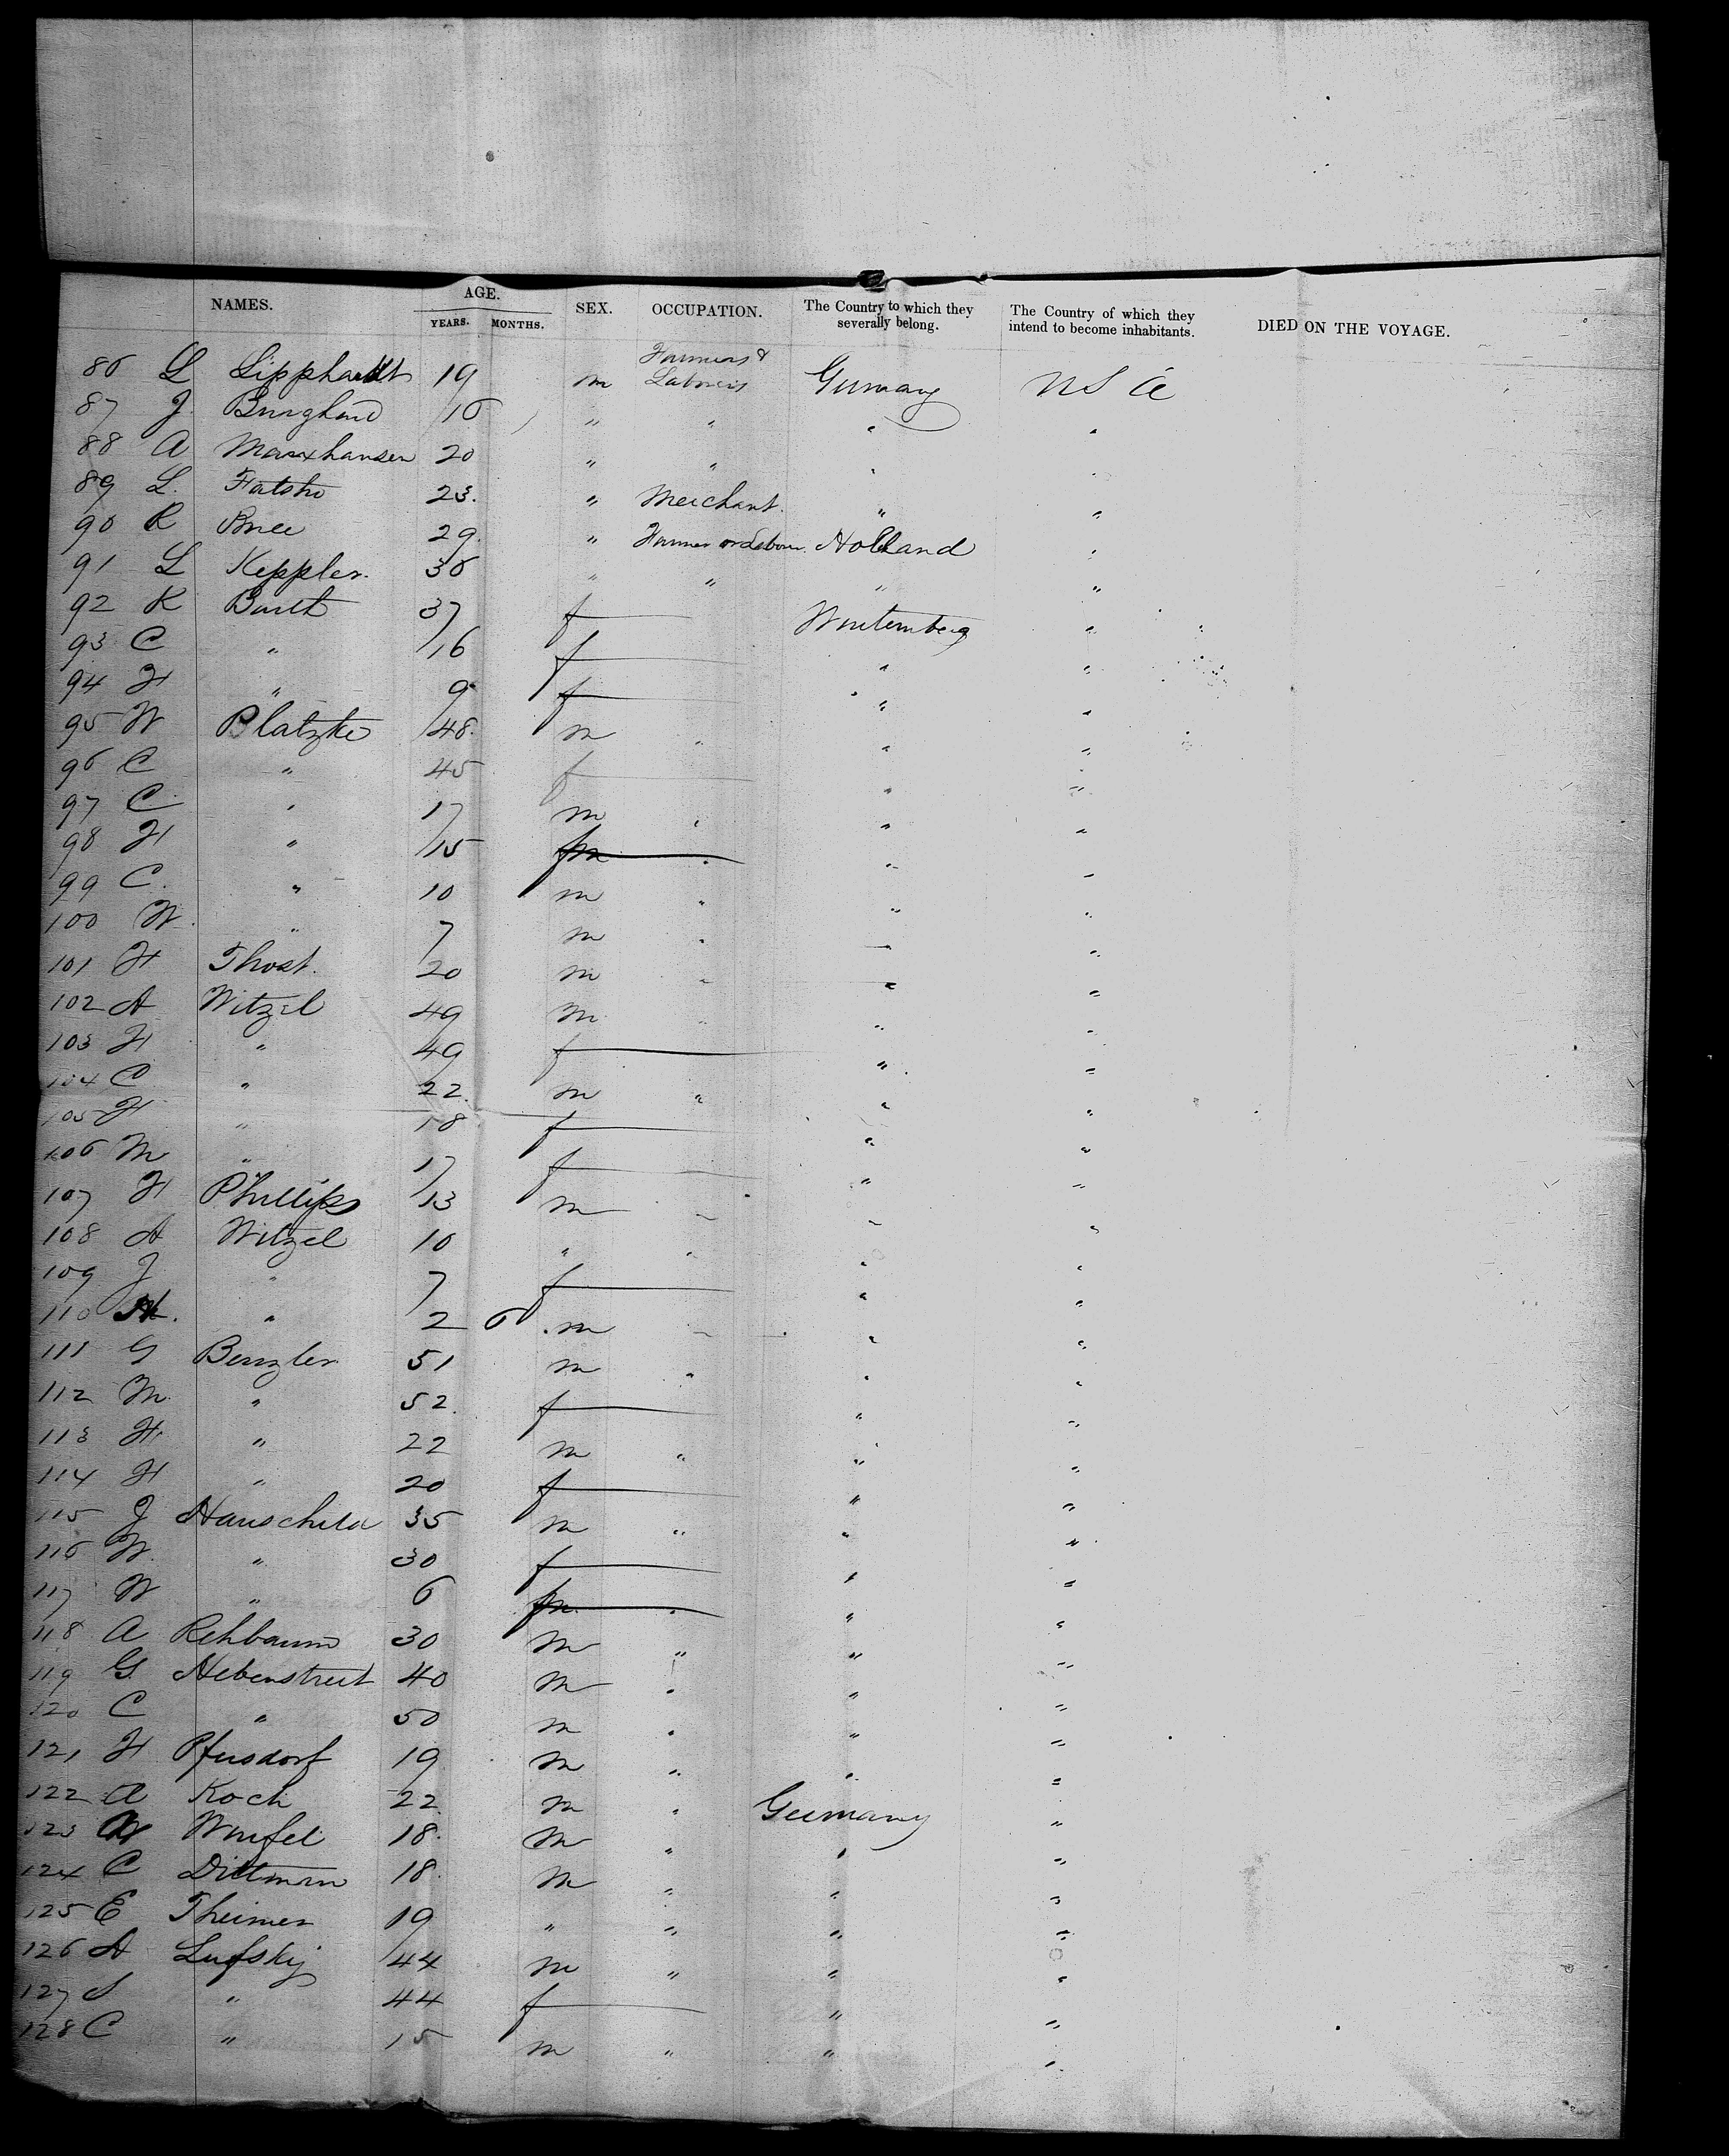 NAMES. AGE. YEARS. MONTHS. SEX. OCCUPATION. The Country to which they severally belong. The Country of which they intend to become inhabitants. DIED ON THE VOYAGE.
86 L Lipphardt 19 m Farmers & Laborers Germany U S A
87 J Burghard 16 " " " "
88 A Marxhausen 20 " " " "
89 L. 23. " Merchant. " "
90 R 29. " Farmer or Labour. Holland "
91 L Keppler. 36 " " " "
92 K Barth 37 f Wurtemberg "
93 C " 16 f " "
94 H " 9 f " "
95 W Platzke 48. m " " "
96 C " 45 f " "
97 C " 17 m " " "
98 H " 15 m " " "
99 C. " 10 m " " "
100 W. " 7 m " " "
101 H Thost. 20 m " " "
102 A Witzel 49 m " " "
103 H " 49 f " "
104 C " 22. m " " "
105 H " 18 f " "
106 M " 17 f " "
107 H Phillips 13 m " " "
108 A Witzel 10 " " " "
109 J " 7 f " "
110 " 2 6 m " " "
111 G Benzler 51 m " " "
112 M. " 52. f " "
113 H " 22 m " " "
114 H " 20 f " "
115 J Hauschild 35 m " " "
116 W. " 30 f " "
117 W " 6 m " " "
118 A Rehbaum 30 m " " "
119 G. Hebenstreit 40 m " " "
120 C " 50 m " " "
121 H Pfersdorf 19 m " " "
122 A Koch 22 m " Germany "
123 W Wurfel 18. m " " "
124 C Dittman 18. m " " "
125 E Theimer 19 " " " "
126 A Lufsky 44 m " " "
127 S " 44 f " "
128 C " 15 m " " "